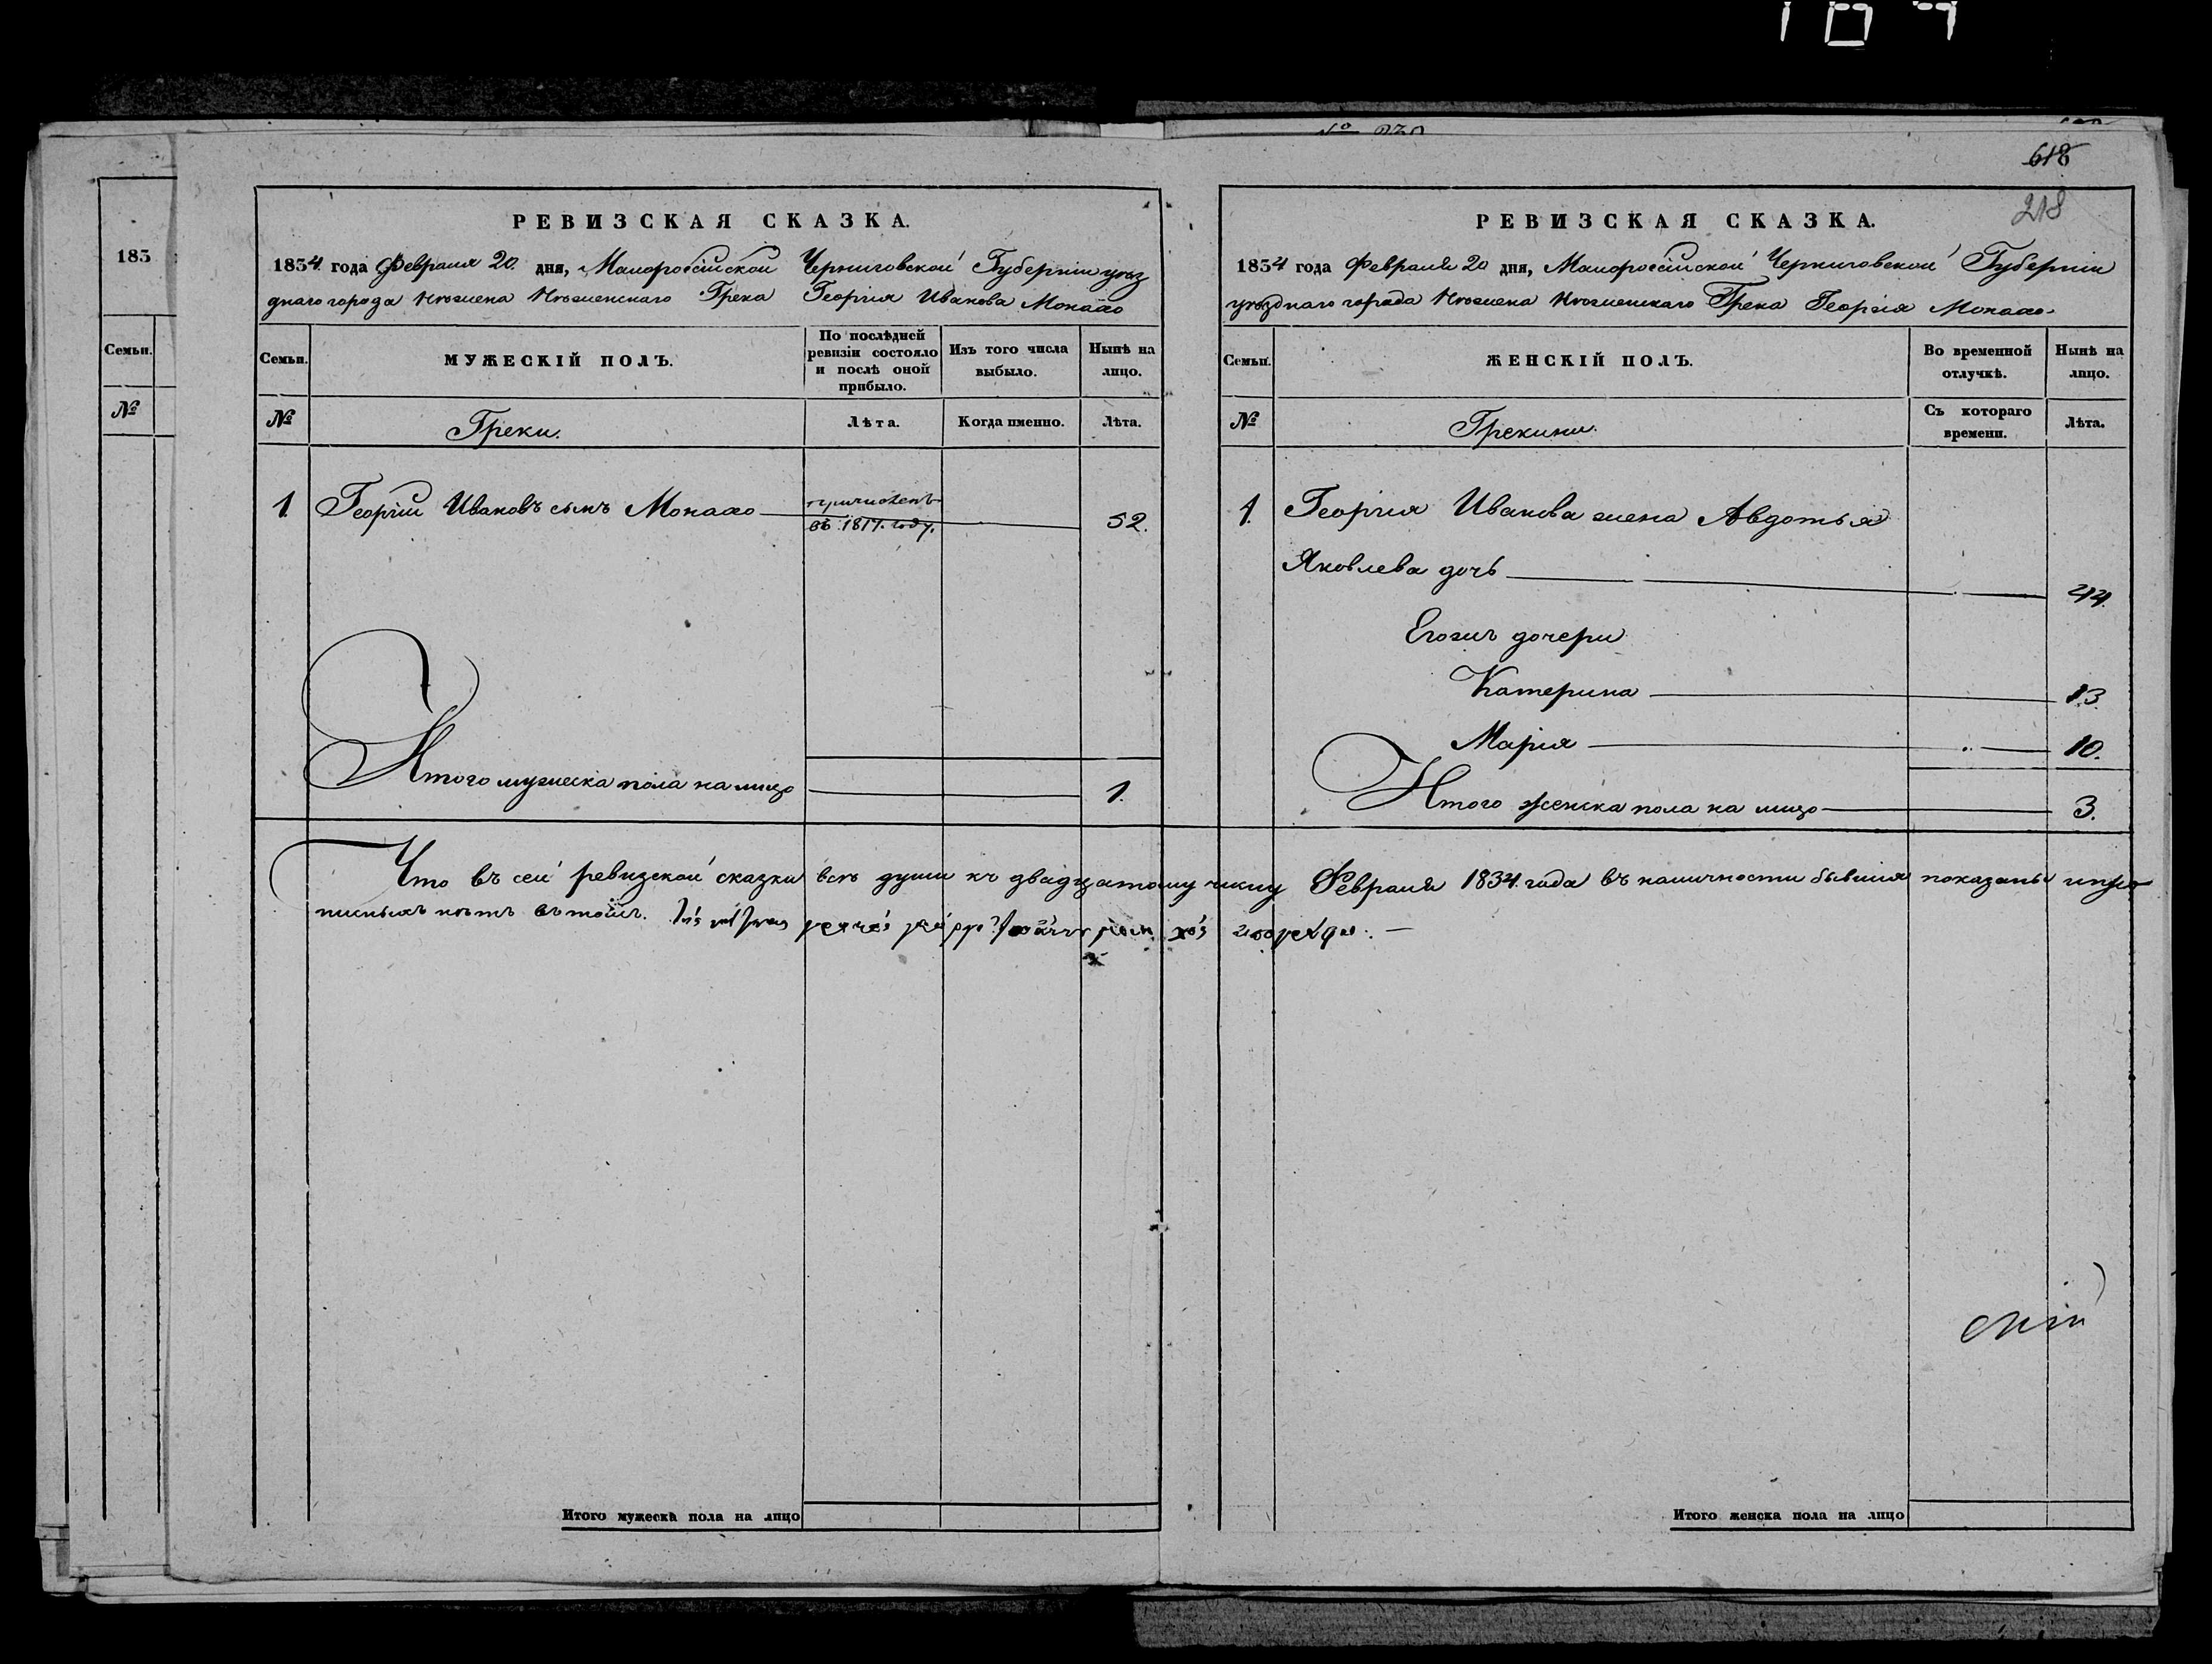 618
218
РЕВИЗСКАЯ СКАЗКА.
1834 года Февраля 20. дня, Малороссійской Черниговской Губерніи уѣз
днаго города Нѣжина Нѣжинскаго Грека Георгія Иванова Монахо
Семьи.
МУЖЕСКІЙ ПОЛЪ.
По послѣдней ревизіи состояло и послѣ оной прибыло.
Изъ того числа выбыло.
Нынѣ на лицо.
№
Греки.
Лѣта.
Когда именно.
Лѣта.
1. Георгій Ивановъ сынъ Монахо
причисленъ
въ 1817. году.
52.
Итого мужеска пола на лицо 1.
РЕВИЗСКАЯ СКАЗКА.
1834 года Февраля 20 дня, Малороссійской Черниговской Губерніи
уѣзднаго города Нѣжина Нѣжинскаго Грека Георгія Монахо
Семьи.
ЖЕНСКІЙ ПОЛЪ.
Во временной отлучкѣ.
Нынѣ на лицо.
№
Грекини.
Съ котораго времени.
Лѣта.
1. Георгія Иванова жена Авдотья
Яковлева дочь 44.
Егожъ дочери
Катерина 13.
Марія 10.
Итого женска пола на лицо 3.
Что въ сей ревизской сказки всѣ души къ двадцатому числу Февраля 1834. года въ наличности бывшія показаны
нѣтъ въ томъ.
скій
Итого мужеска пола на лицо
Итого женска пола на лицо
183
Семьи.
№